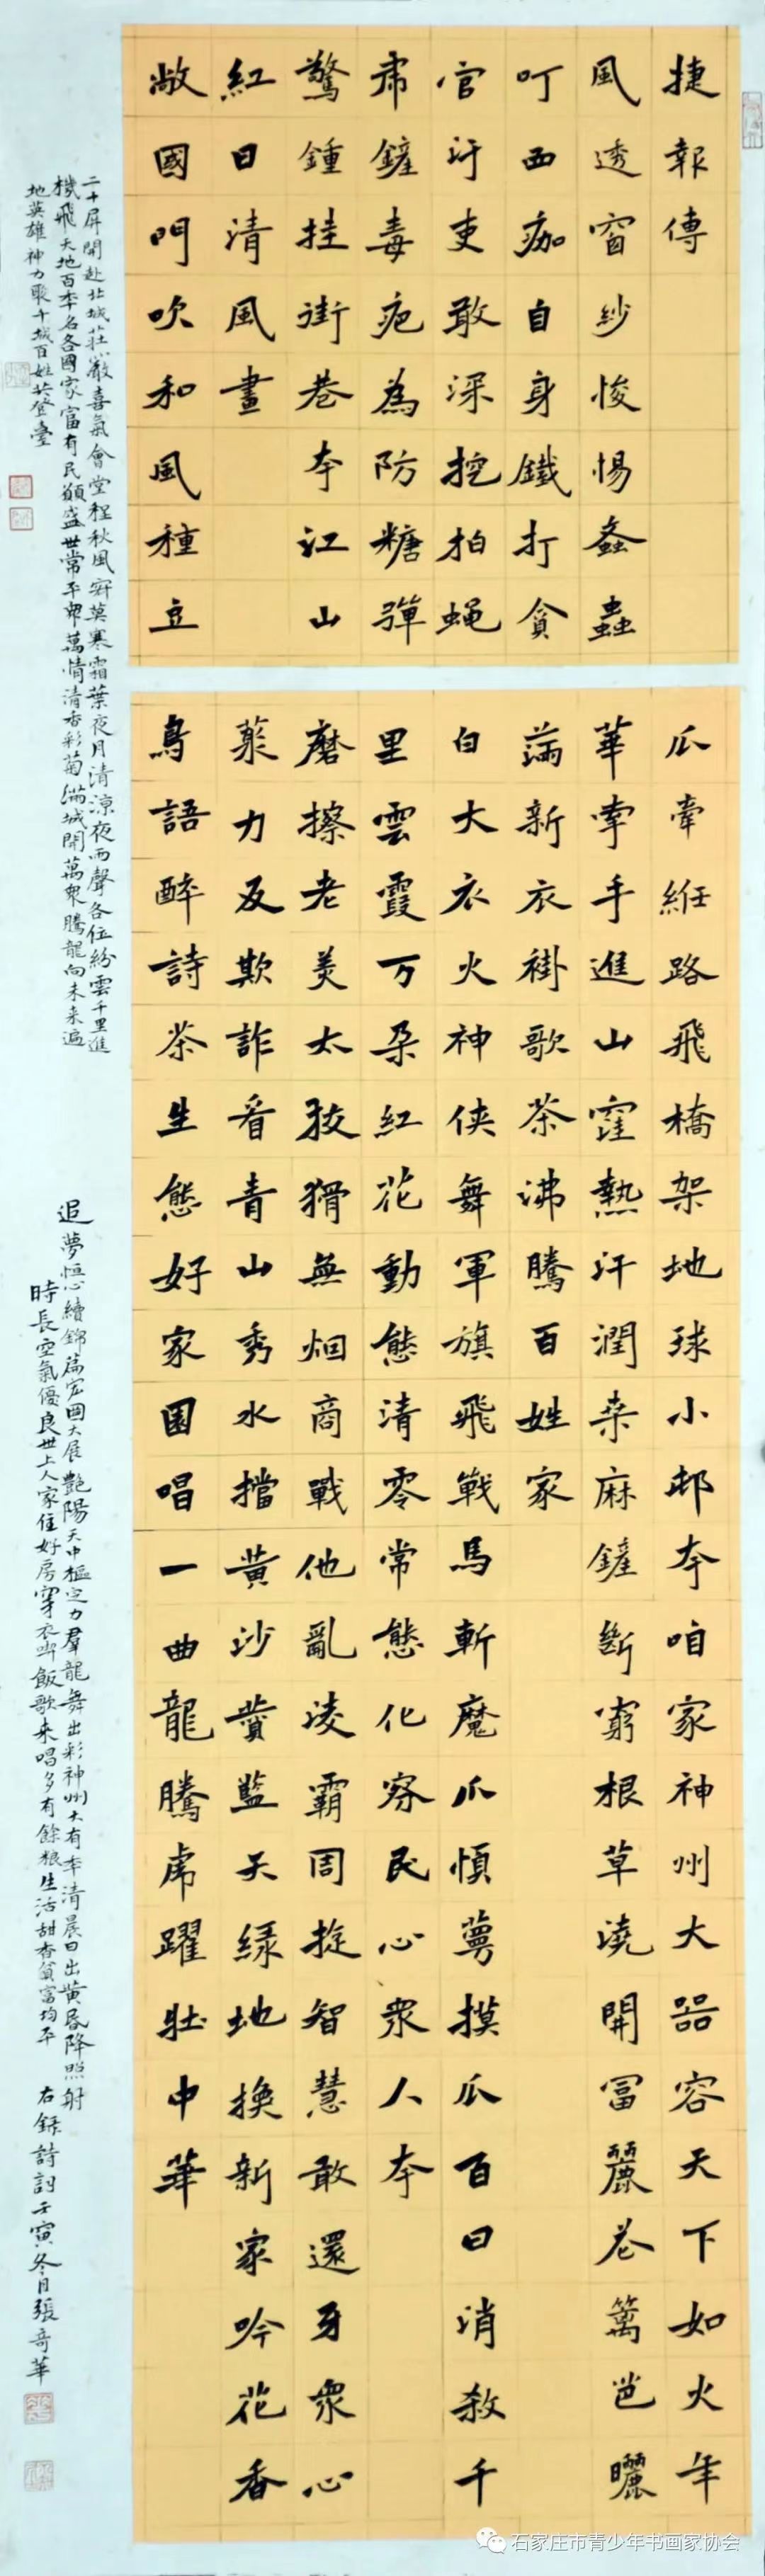 捷報傳
風透窗紗悛惕螽蟲
叮西痂自身鐵打貪
官汙吏敢深挖拍蝇
肅鏟毒疤為防糖彈
驚鍾挂街巷本江山
紅日清風畫
敞國門吹和風種豆
瓜牽絍路飛橋架地球小邨本咱家神州大器容天下如火年
華牽手進山窪熱汗潤桒麻鏟斷窮根草澆開冨麗花篱笆曬
蒲新衣褂歌茶沸騰百姓家
白大衣火神侠舞軍旗飛戰馬斬魔爪慎蕚摸瓜百日消殺千
里雲霞万朶紅花動態清零常態化察民心衆人本
磨擦老美太狡猾無烟商戰他亂凌霸周掟智慧敢還牙衆心
聚力反欺詐看青山秀水擋黄沙黄藍天绿地換新家吟花香
鳥語醉詩茶生態好家園唱一曲龍騰虎躍壯中華
二十屏開赴北城莊嚴喜氣會堂程秋風寒霜葉夜月清涼夜雨聲各位紛雲千里進
機飛天地百季名各國家富有民願盛世常平衆萬情清香彩菊滿城開萬衆騰龍向未来遍
地英雄神力聚千城百姓共登臺
追夢恒心續錦篇宏圖大展艷陽天中樞定力羣龍舞出彩神州大有季清晨日出黄昏降照射
時長空氣優良世上人家住好房穿衣吃飯歌来唱多有餘粮生活甜香貧富均平
右録詩詞壬寅冬月張奇華
石家庄市青少年书画家协会